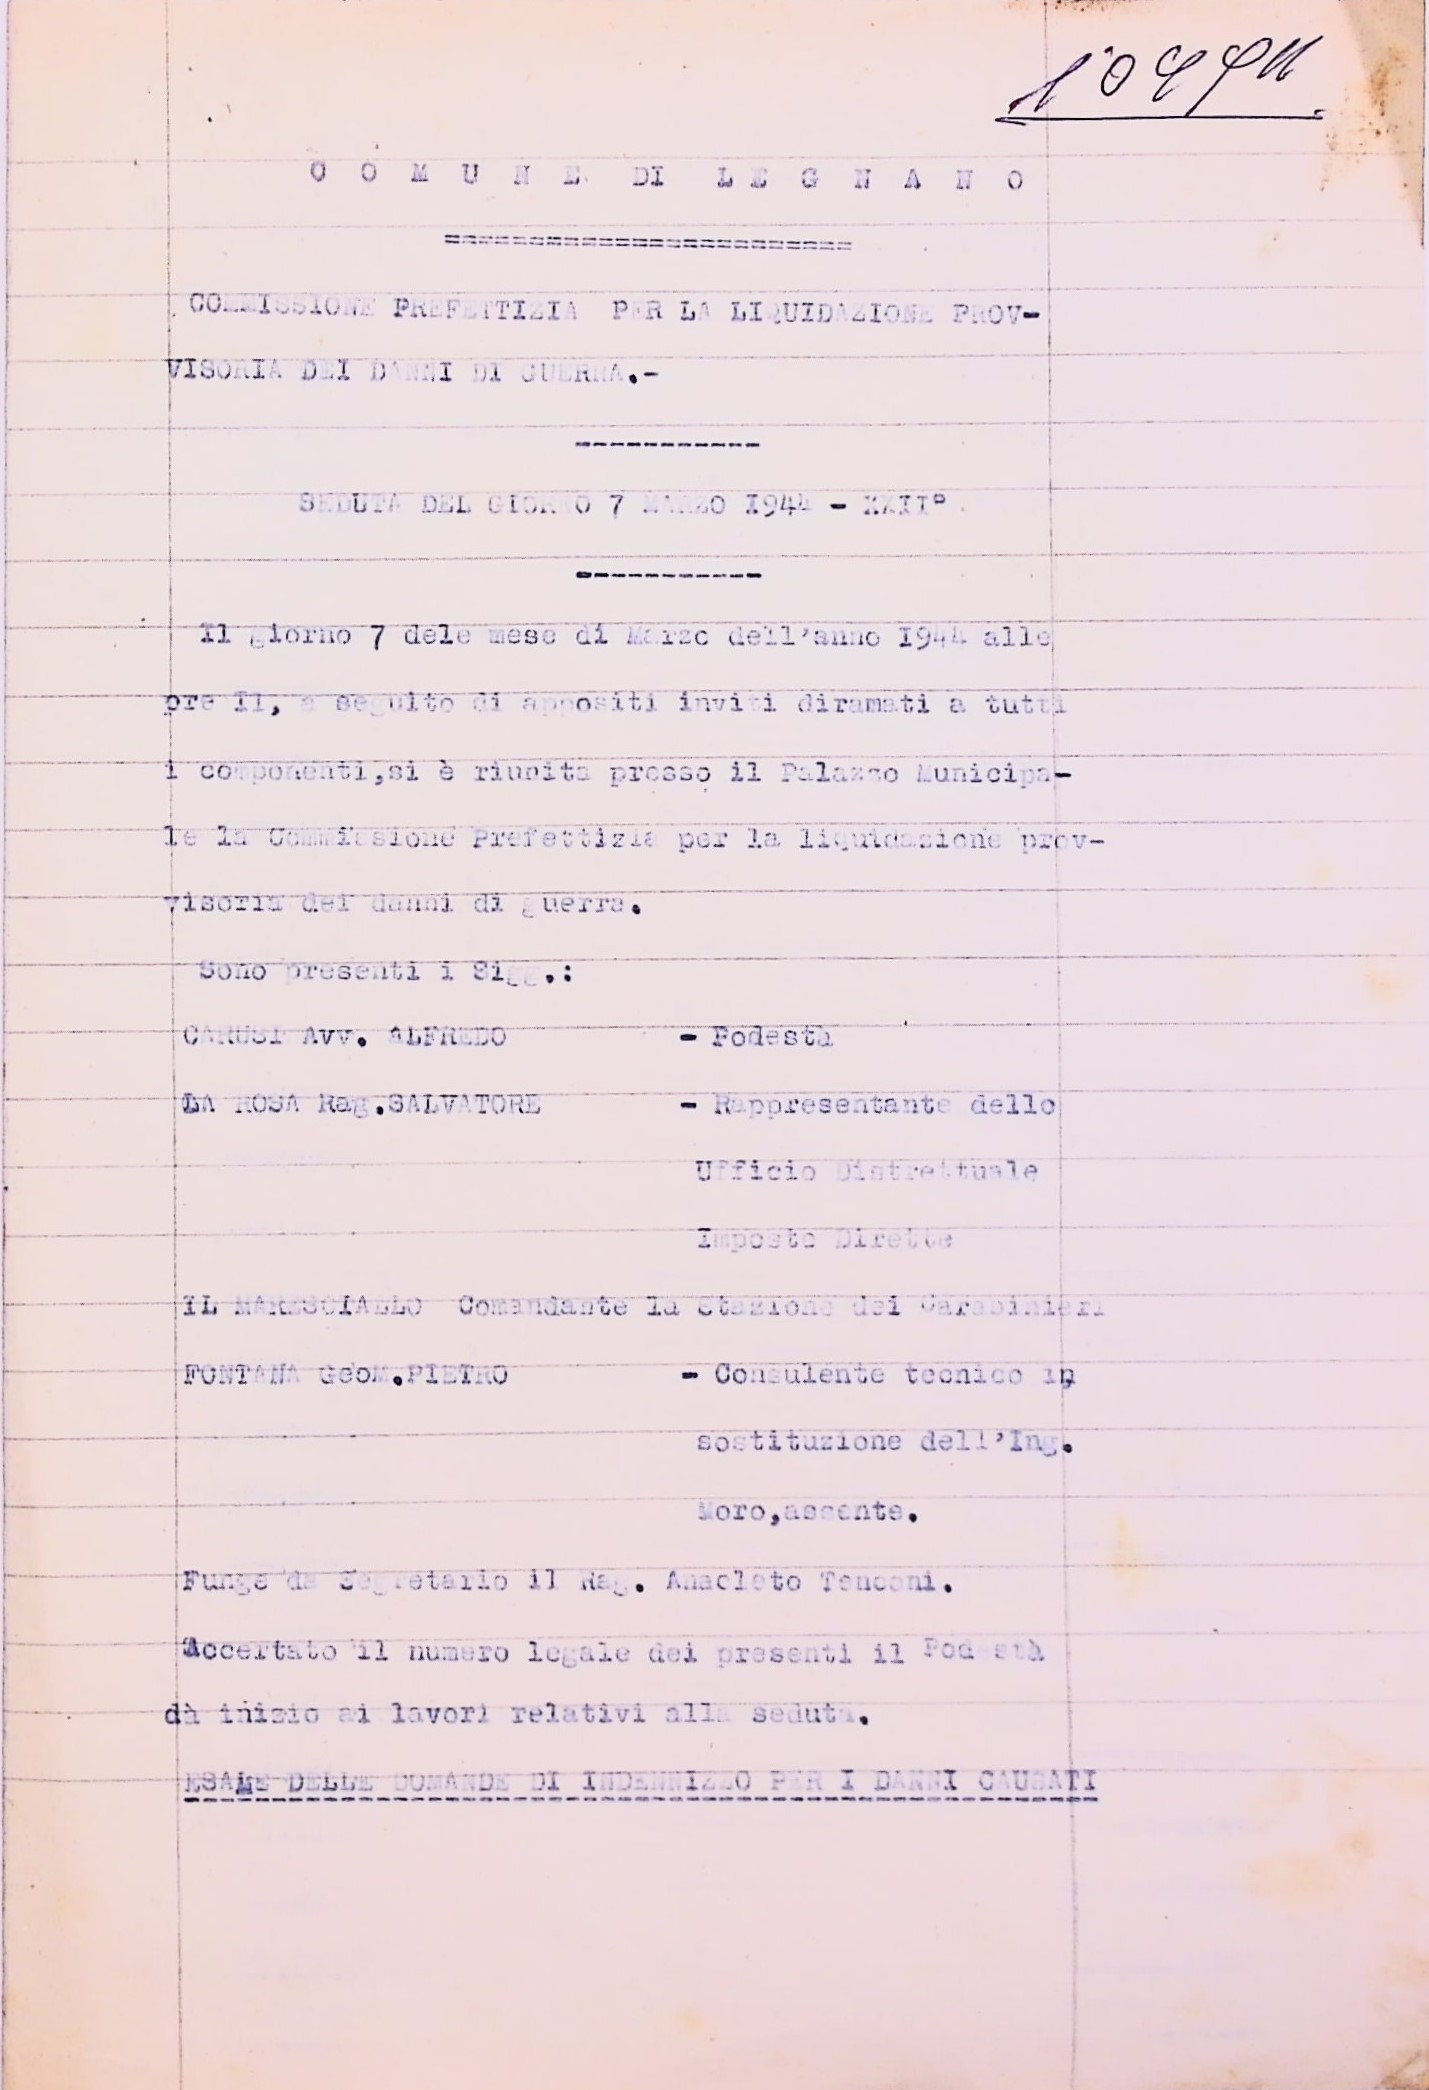 COMUNE DI LEGNANO
========================
COMMISSIONE PREFETTIZIA PER LA LIQUIDAZIONE PROV-
VISORIA DEI DANNI DI GUERRA.-
-----------
SEDUTA DEL GIORNO 7 MARZO 1944 - XXII°
-----------
Il giorno 7 dele mese di Marzo dell'anno 1944 alle
ore II, a seguito di appositi inviti diramati a tutti
i componenti,si è riunita presso il Palazzo Municipa-
le la Commissione Prefettizia per la liquidazione prov-
visoria dei danni di guerra.
Sono presenti i Sigg.:
CARUSI Avv. ALFREDO - Podestà
LA ROSA Rag.SALVATORE - Rappresentante dello
Ufficio Distrettuale
Imposte Dirette
IL MARESCIALLO Comandante la Stazione dei Carabinieri
FONTANA Geom.PIETRO - Consulente tecnico in
sostituzione dell'Ing.
Moro,assente.
Funge da Segretario il Rag. Anacleto Tenconi.
Accertato il numero legale dei presenti il Podestà
dà inizio ai lavori relativi alla seduta.
ESAME DELLE DOMANDE DI INDENNIZZO PER I DANNI CAUSATI